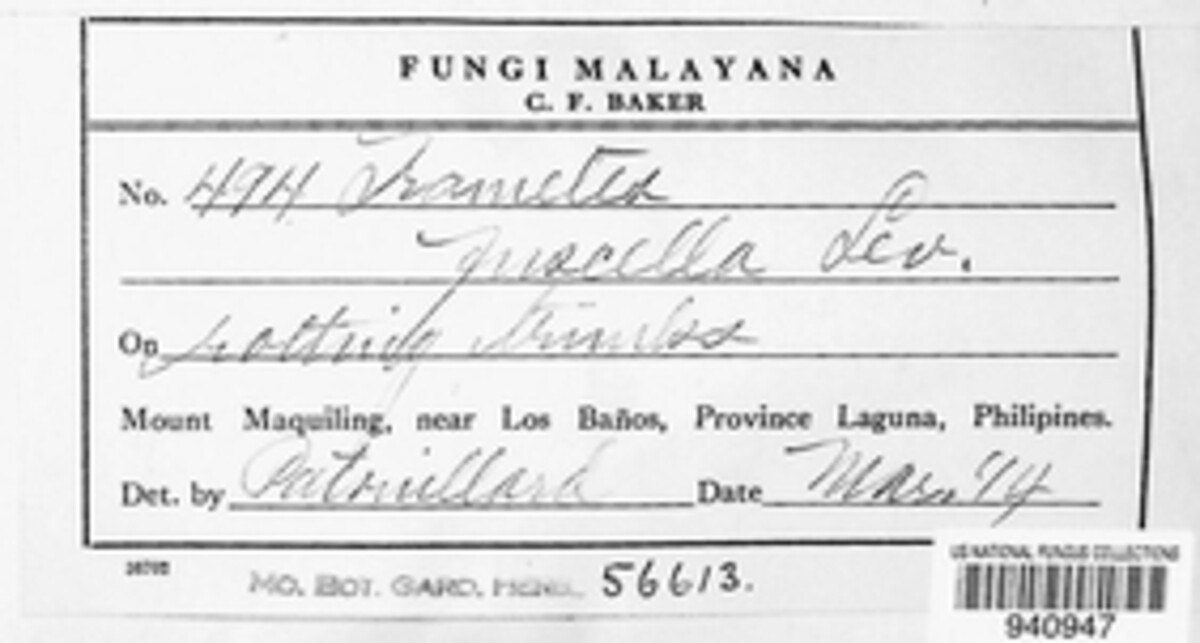 FUNGI MALAYANA
C. F. BAKER
No. 494 Trametes
Muscella Lev.
On rotting trunks
Mount Maquiling, near Los Baños, Province Laguna, Philipines.
Det. by Patouillard Date Mar. '14
MO. BOT. GARD. HERB. 56613.
US NATIONAL FUNGUS COLLECTIONS
940947